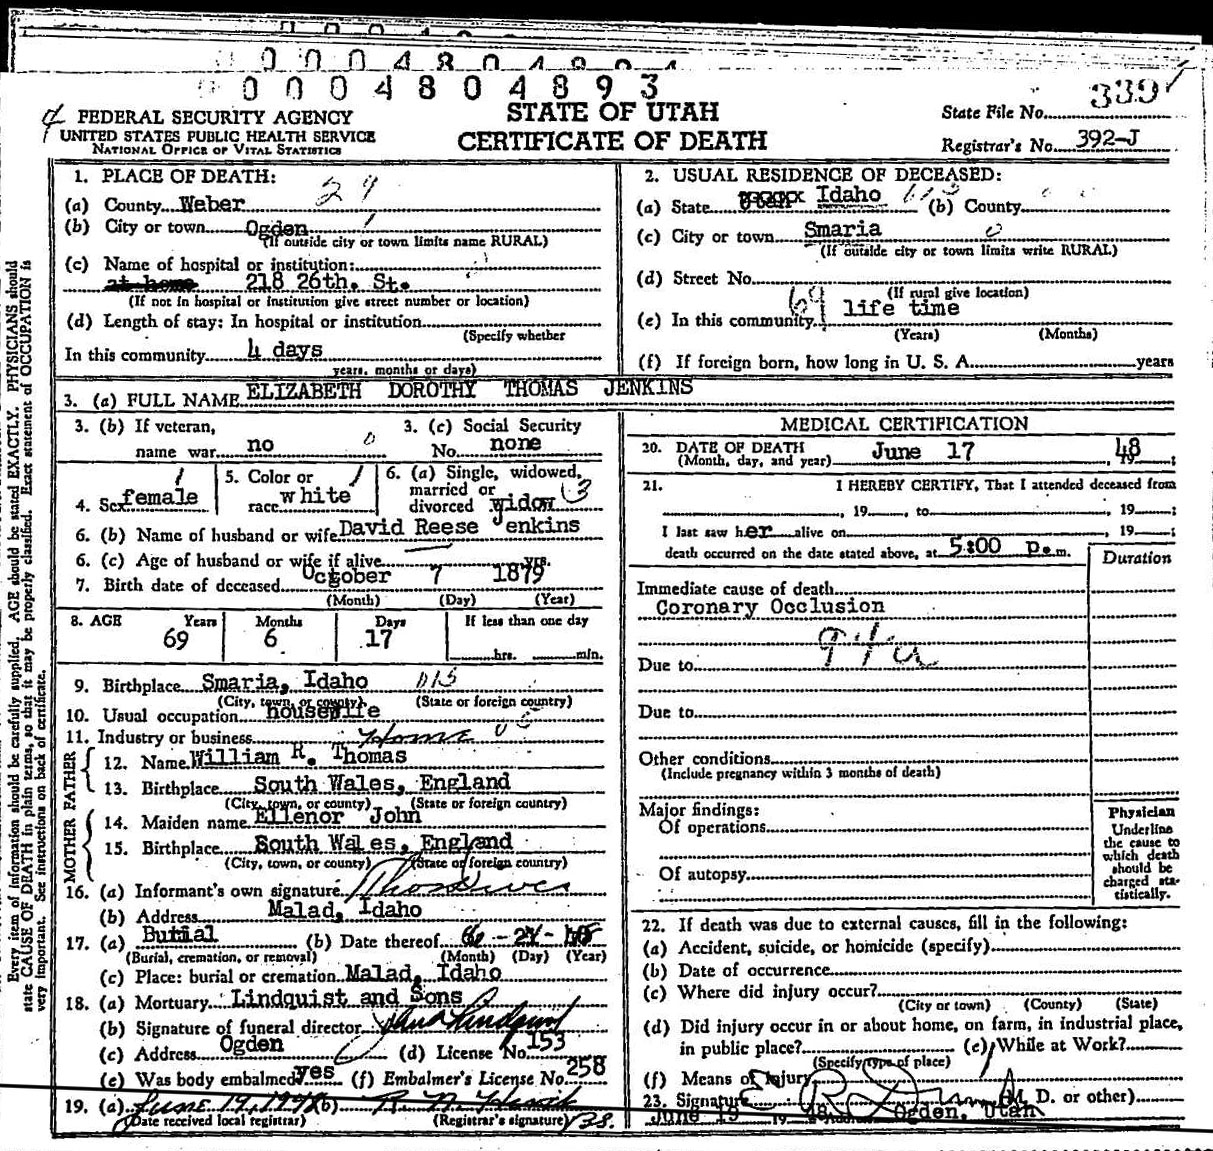 0 0 0 4 8 0 4 8 9 3
4 FEDERAL SECURITY AGENCY
UNITED STATES PUBLIC HEALTH SERVICE
NATIONAL OFFICE OF VITAL STATISTICS
STATE OF UTAH
CERTIFICATE OF DEATH
State File No. 339
Registrar's No. 392-J
Every item of information should be carefully supplied. AGE should be stated EXACTLY. PHYSICIANS should
state CAUSE OF DEATH in plain terms, so that it may be properly classified. Exact statement of OCCUPATION is
very important. See instructions on back of certificate.
1. PLACE OF DEATH: 29
(a) County Weber
(b) City or town Ogden
(If outside city or town limits name RURAL)
(c) Name of hospital or institution:
at home 218 26th. St.
(If not in hospital or institution give street number or location)
(d) Length of stay: In hospital or institution
(Specify whether
In this community 4 days
years, months or days)
2. USUAL RESIDENCE OF DECEASED:
(a) State Idaho (b) County
(c) City or town Smaria
(If outside city or town limits write RURAL)
(d) Street No.
(If rural give location)
(e) In this community 69 life time
(Years) (Months)
(f) If foreign born, how long in U. S. A. years
3. (a) FULL NAME ELIZABETH DOROTHY THOMAS JENKINS
3. (b) If veteran, name war no
3. (c) Social Security No. none
4. Sex female
5. Color or race white
6. (a) Single, widowed, married or divorced widow 3
6. (b) Name of husband or wife David Reese Jenkins
6. (c) Age of husband or wife if alive yrs.
7. Birth date of deceased October 7 1879
(Month) (Day) (Year)
8. AGE Years Months Days If less than one day
69 6 17 hrs. min.
9. Birthplace Smaria, Idaho
(City, town, or county) (State or foreign country)
10. Usual occupation housewife
11. Industry or business Home
FATHER
12. Name William R. Thomas
13. Birthplace South Wales, England
(City, town, or county) (State or foreign country)
MOTHER
14. Maiden name Ellenor John
15. Birthplace South Wales, England
(City, town, or county) (State or foreign country)
16. (a) Informant's own signature
(b) Address Malad, Idaho
17. (a) Burial (b) Date thereof 6-24-48
(Burial, cremation, or removal) (Month) (Day) (Year)
(c) Place: burial or cremation Malad, Idaho
18. (a) Mortuary Lindquist and Sons
(b) Signature of funeral director
(c) Address Ogden (d) License No. 153
(e) Was body embalmed? yes (f) Embalmer's License No. 258
19. (a) June 19, 1948 (b)
(Date received local registrar) (Registrar's signature)
MEDICAL CERTIFICATION
20. DATE OF DEATH June 17 1948;
(Month, day, and year)
21. I HEREBY CERTIFY, That I attended deceased from
, 19 , to , 19 ;
I last saw her alive on , 19 ;
death occurred on the date stated above, at 5:00 p.m.
Duration
Immediate cause of death
Coronary Occlusion
94a
Due to
Due to
Other conditions
(Include pregnancy within 3 months of death)
Major findings:
Of operations
Of autopsy
Physician
Underline
the cause to
which death
should be
charged sta-
tistically.
22. If death was due to external causes, fill in the following:
(a) Accident, suicide, or homicide (specify)
(b) Date of occurrence
(c) Where did injury occur?
(City or town) (County) (State)
(d) Did injury occur in or about home, on farm, in industrial place,
in public place? (e) While at Work?
(Specify type of place)
(f) Means of Injury
23. Signature (M. D. or other)
June 19 1948 Address Ogden, Utah